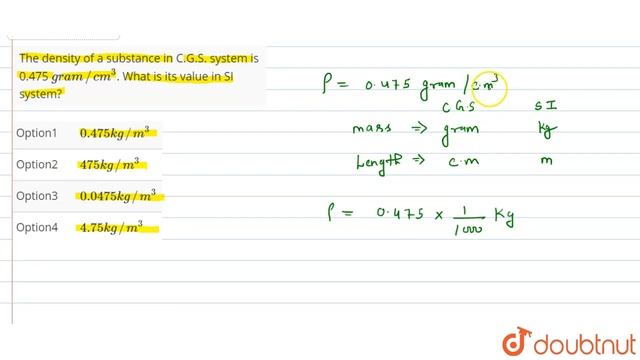 The density of a substance in C.G.S. system is
0.475 gram/cm³. What is its value in SI
system?
Option1 0.475kg/m³
Option2 475kg/m³
Option3 0.0475kg/m³
Option4 4.75kg/m³
ρ = 0.475 gram/cm³
CGS SI
mass ⇒ gram kg
Length ⇒ c.m m
ρ = 0.475 × 1/1000 Kg
doubtnut